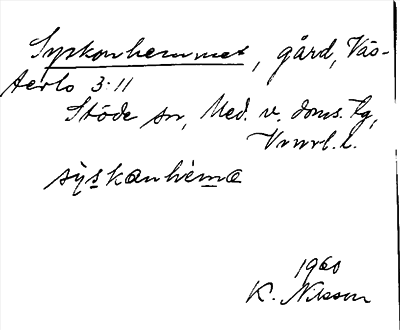 Syskonhemmet, gård, Väs-
terlo 3:11
Stöde sn, Med. v. doms. tg,
Vnrrl. l.
syskanhema
1960
K. Nilsson